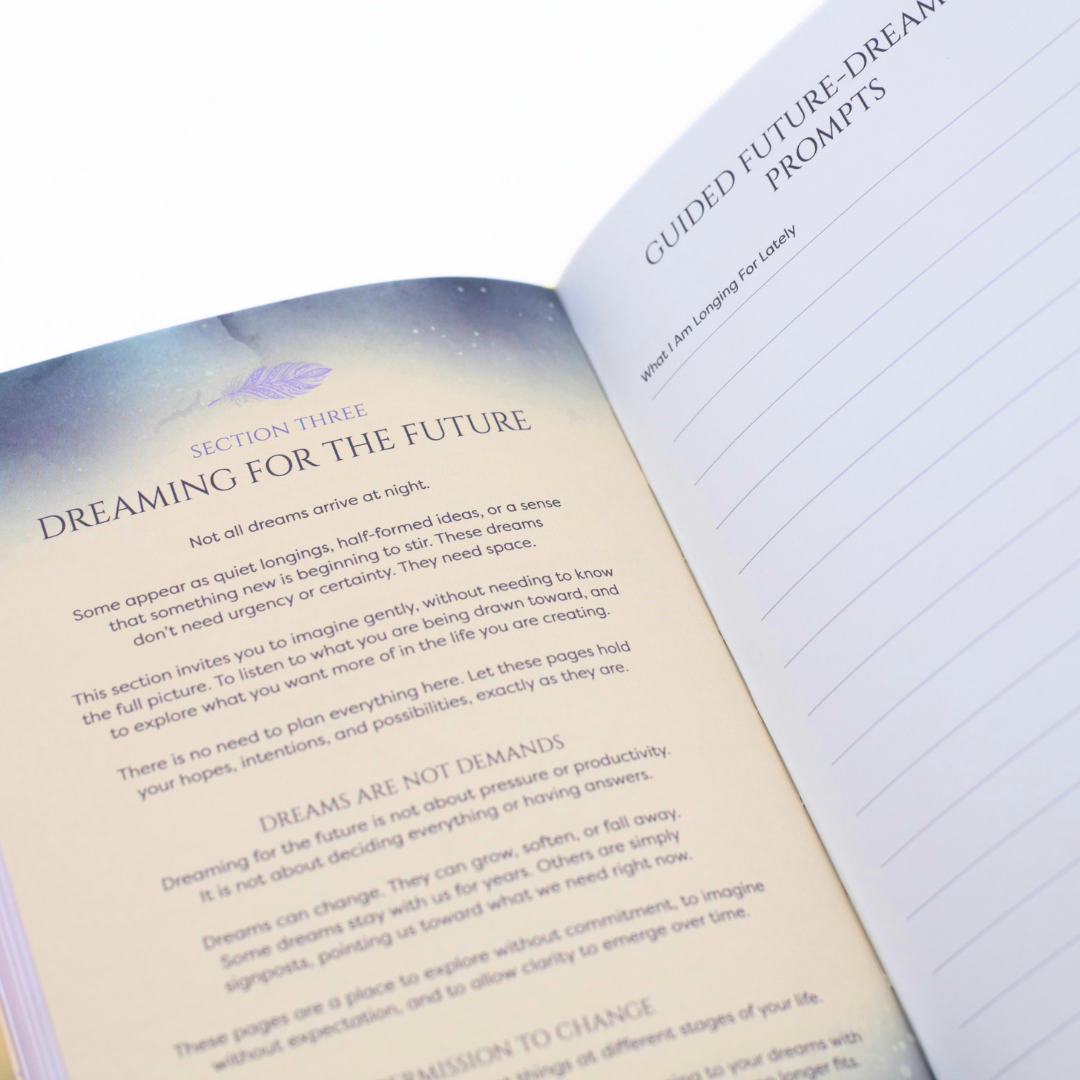 SECTION THREE
DREAMING FOR THE FUTURE
Not all dreams arrive at night.
Some appear as quiet longings, half-formed ideas, or a sense
that something new is beginning to stir. These dreams
don't need urgency or certainty. They need space.
This section invites you to imagine gently, without needing to know
the full picture. To listen to what you are being drawn toward, and
to explore what you want more of in the life you are creating.
There is no need to plan everything here. Let these pages hold
your hopes, intentions, and possibilities, exactly as they are.
DREAMS ARE NOT DEMANDS
Dreaming for the future is not about pressure or productivity.
It is not about deciding everything or having answers.
Dreams can change. They can grow, soften, or fall away.
Some dreams stay with us for years. Others are simply
signposts, pointing us toward what we need right now.
These pages are a place to explore without commitment, to imagine
without expectation, and to allow clarity to emerge over time.
TO CHANGE
things at different stages of your life.
to your dreams with
longer fits.
GUIDED FUTURE-DREAM
PROMPTS
What I Am Longing For Lately